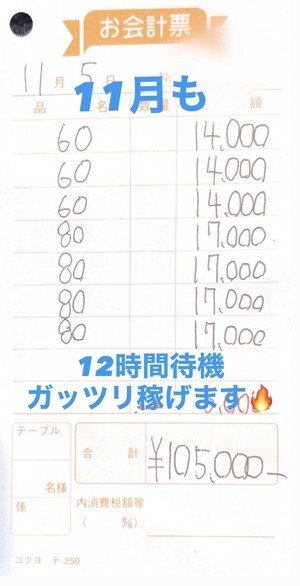 お会計票
11月5日
11月も
品 名 数 額
60 14,000
60 14,000
60 14,000
80 17,000
80 17,000
80 17,000
80 17,000
12時間待機
ガッツリ稼げます🔥
テーブル
名様
係
合 計 ¥105,000-
内消費税額等
( %)
コクヨ テ-250